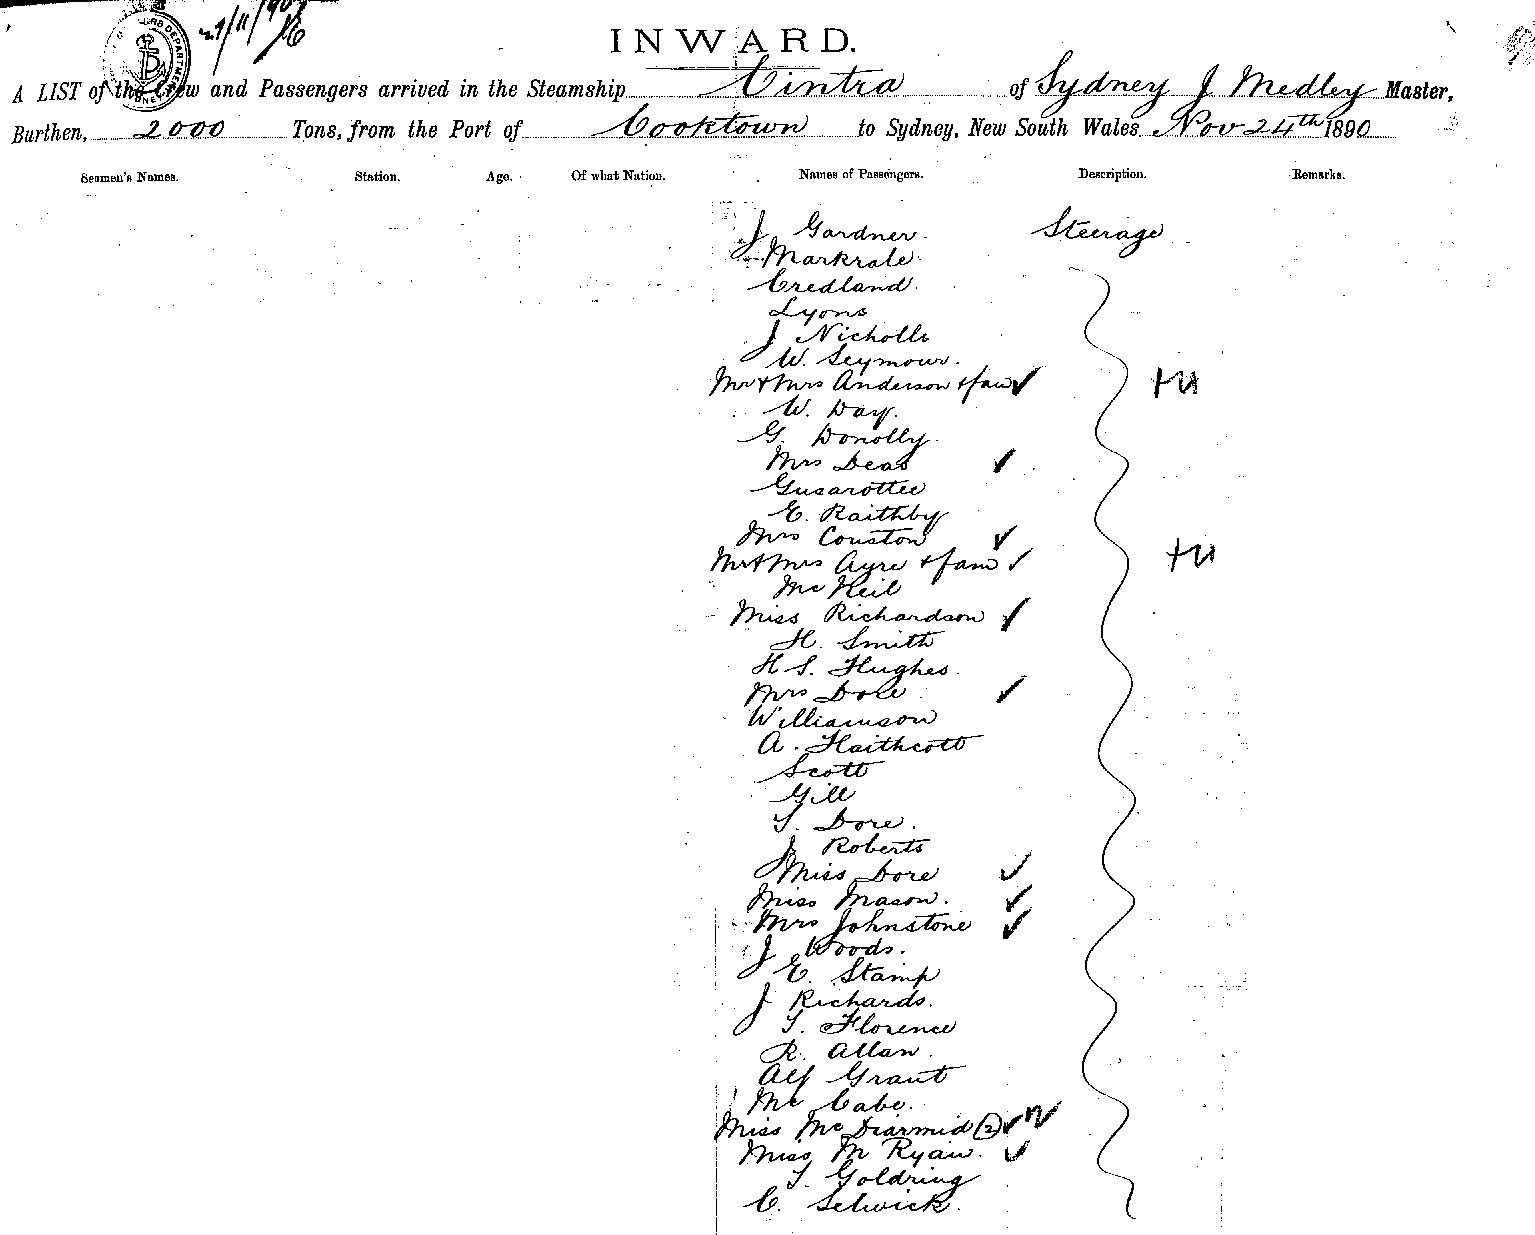 INWARD.
A LIST of the Crew and Passengers arrived in the Steamship Cintra of Sydney J Medley Master,
Burthen, 2000 Tons, from the Port of Cooktown to Sydney, New South Wales, Nov 24th 1890
Seamen's Names. Station. Age. Of what Nation. Names of Passengers. Description. Remarks.
J Gardner. Steerage
Markrale
Credland
Lyons
J Nicholls
W. Seymour.
Mr & Mrs Anderson & fam ✓
W. Day.
G. Donolly.
Mrs Deas ✓
Gusarottee
E. Raithby
Mrs Couston ✓
Mr & Mrs Ayre & fam ✓
McNeil
Miss Richardson ✓
H. Smith
H S. Hughes.
Mrs Dore ✓
Williamson
A. Haithcott
Scott
Gill
T. Dore.
J Roberts
Miss Dore ✓
Miss Mason. ✓
Mrs Johnstone ✓
J Woods.
E. Stamp
J Richards.
T. Florence
R. Allan.
Alf Grant
Mc Cabe.
Miss McDiarmid (2) ✓
Miss M Ryan. ✓
T. Goldring
C. Selwick.